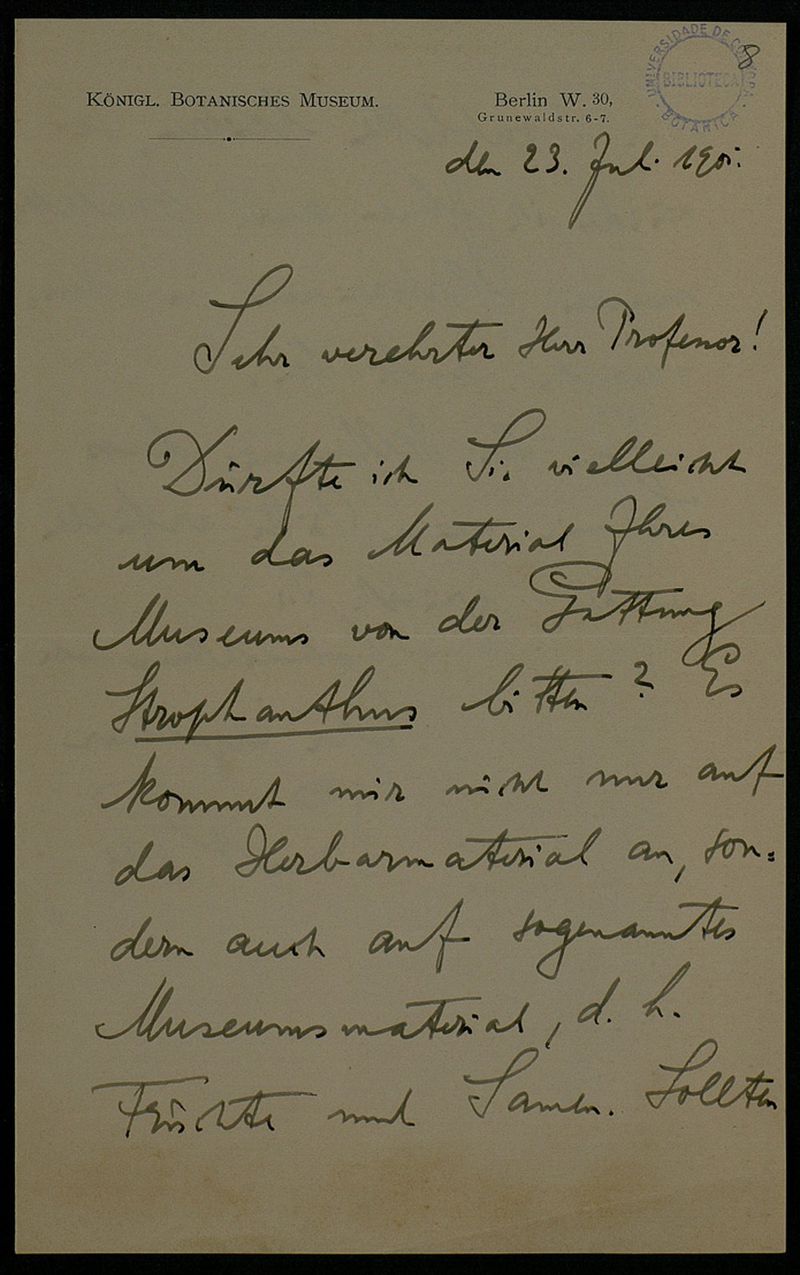 UNIVERSIDADE DE COIMBRA
BIBLIOTECA
BOTANICA
8
KÖNIGL. BOTANISCHES MUSEUM.
Berlin W. 30,
Grunewaldstr. 6-7.
den 23. Jul.
Sehr verehrter Herr Professor!
Dürfte ich Sie vielleicht
um das Material Ihres
Museums von der Gattung
Strophanthus bitten? Es
kommt mir nicht nur auf
das Herbarmaterial an, son=
dern auch auf sogenanntes
Museumsmaterial, d. h.
Früchte und Samen. Sollten